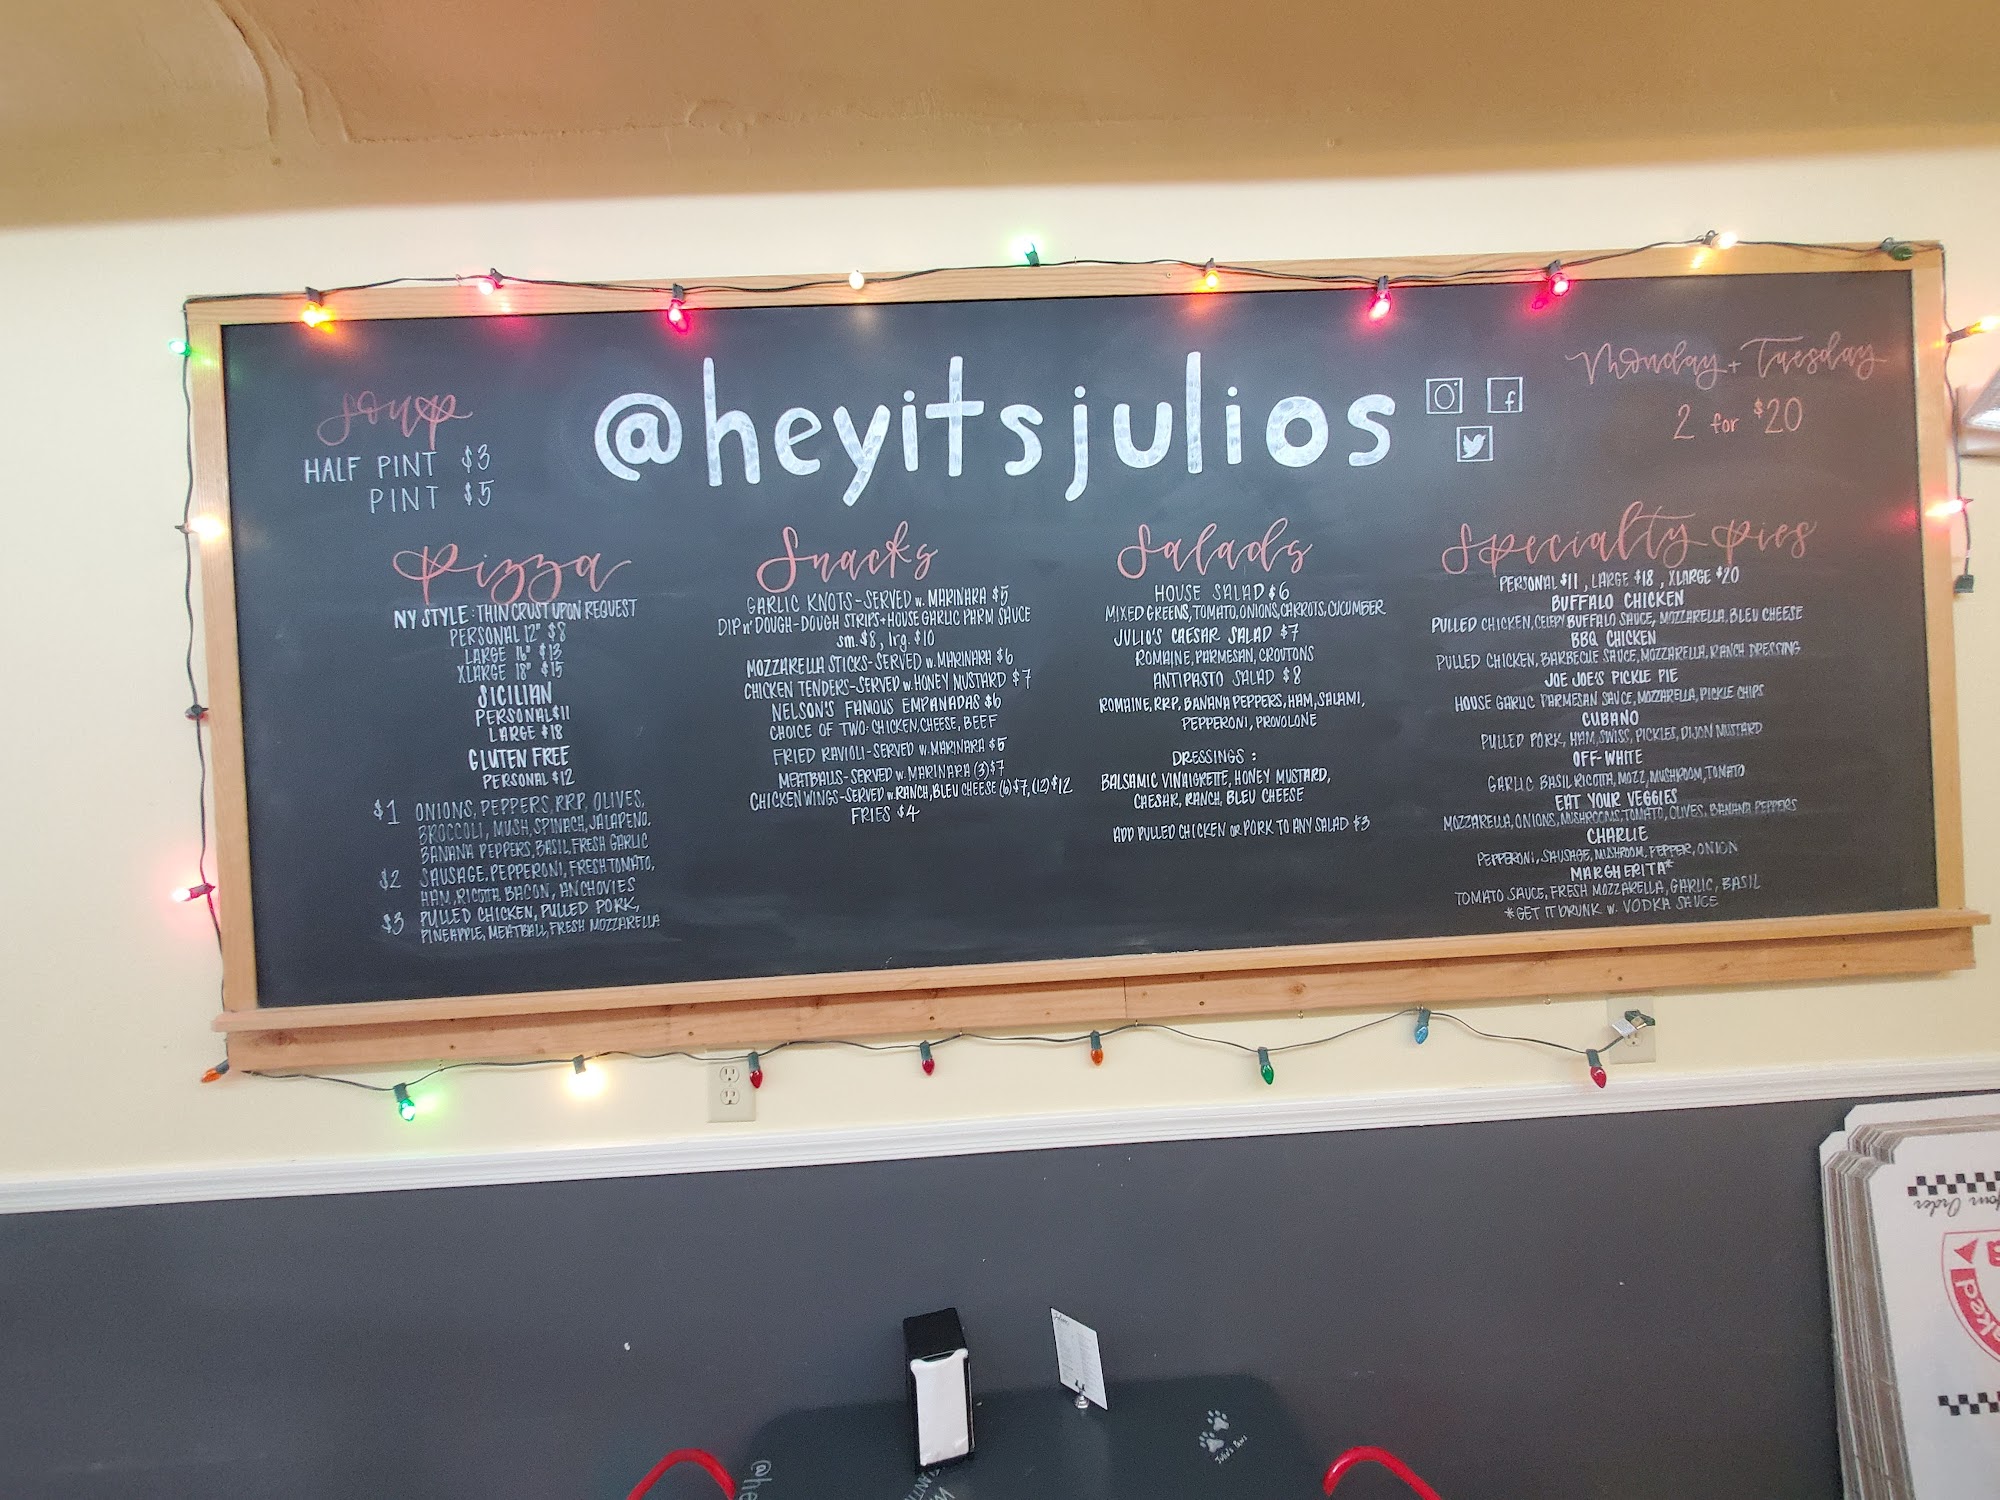 @heyitsjulios
Soup
HALF PINT $3
PINT $5
Monday + Tuesday
2 for $20
Pizza
NY STYLE: THIN CRUST UPON REQUEST
PERSONAL 12" $8
LARGE 16" $13
XLARGE 18" $15
SICILIAN
PERSONAL $11
LARGE $18
GLUTEN FREE
PERSONAL $12
$1 ONIONS, PEPPERS, RRP, OLIVES,
BROCCOLI, MUSH, SPINACH, JALAPENO,
BANANA PEPPERS, BASIL, FRESH GARLIC
$2 SAUSAGE, PEPPERONI, FRESH TOMATO,
HAM, RICOTTA, BACON, ANCHOVIES
$3 PULLED CHICKEN, PULLED PORK,
PINEAPPLE, MEATBALL, FRESH MOZZARELLA
Snacks
GARLIC KNOTS - SERVED w. MARINARA $5
DIP n' DOUGH - DOUGH STRIPS + HOUSE GARLIC PARM SAUCE
sm. $8, lrg. $10
MOZZARELLA STICKS - SERVED w. MARINARA $6
CHICKEN TENDERS - SERVED w. HONEY MUSTARD $7
NELSON'S FAMOUS EMPANADAS $6
CHOICE OF TWO: CHICKEN, CHEESE, BEEF
FRIED RAVIOLI - SERVED w. MARINARA $5
MEATBALLS - SERVED w. MARINARA (3) $7
CHICKEN WINGS - SERVED w. RANCH, BLEU CHEESE (6) $7, (12) $12
FRIES $4
Salads
HOUSE SALAD $6
MIXED GREENS, TOMATO, ONIONS, CARROTS, CUCUMBER
JULIO'S CAESAR SALAD $7
ROMAINE, PARMESAN, CROUTONS
ANTIPASTO SALAD $8
ROMAINE, RRP, BANANA PEPPERS, HAM, SALAMI,
PEPPERONI, PROVOLONE
DRESSINGS :
BALSAMIC VINAIGRETTE, HONEY MUSTARD,
CAESAR, RANCH, BLEU CHEESE
ADD PULLED CHICKEN OR PORK TO ANY SALAD $3
Specialty Pies
PERSONAL $11, LARGE $18, XLARGE $20
BUFFALO CHICKEN
PULLED CHICKEN, CELERY, BUFFALO SAUCE, MOZZARELLA, BLEU CHEESE
BBQ CHICKEN
PULLED CHICKEN, BARBECUE SAUCE, MOZZARELLA, RANCH DRESSING
JOE JOE'S PICKLE PIE
HOUSE GARLIC PARMESAN SAUCE, MOZZARELLA, PICKLE CHIPS
CUBANO
PULLED PORK, HAM, SWISS, PICKLES, DIJON MUSTARD
OFF-WHITE
GARLIC BASIL RICOTTA, MOZZ, MUSHROOM, TOMATO
EAT YOUR VEGGIES
MOZZARELLA, ONIONS, MUSHROOMS, TOMATO, OLIVES, BANANA PEPPERS
CHARLIE
PEPPERONI, SAUSAGE, MUSHROOM, PEPPER, ONION
MARGHERITA*
TOMATO SAUCE, FRESH MOZZARELLA, GARLIC, BASIL
*GET IT DRUNK w. VODKA SAUCE
Your Order
Julio's Paws
@he